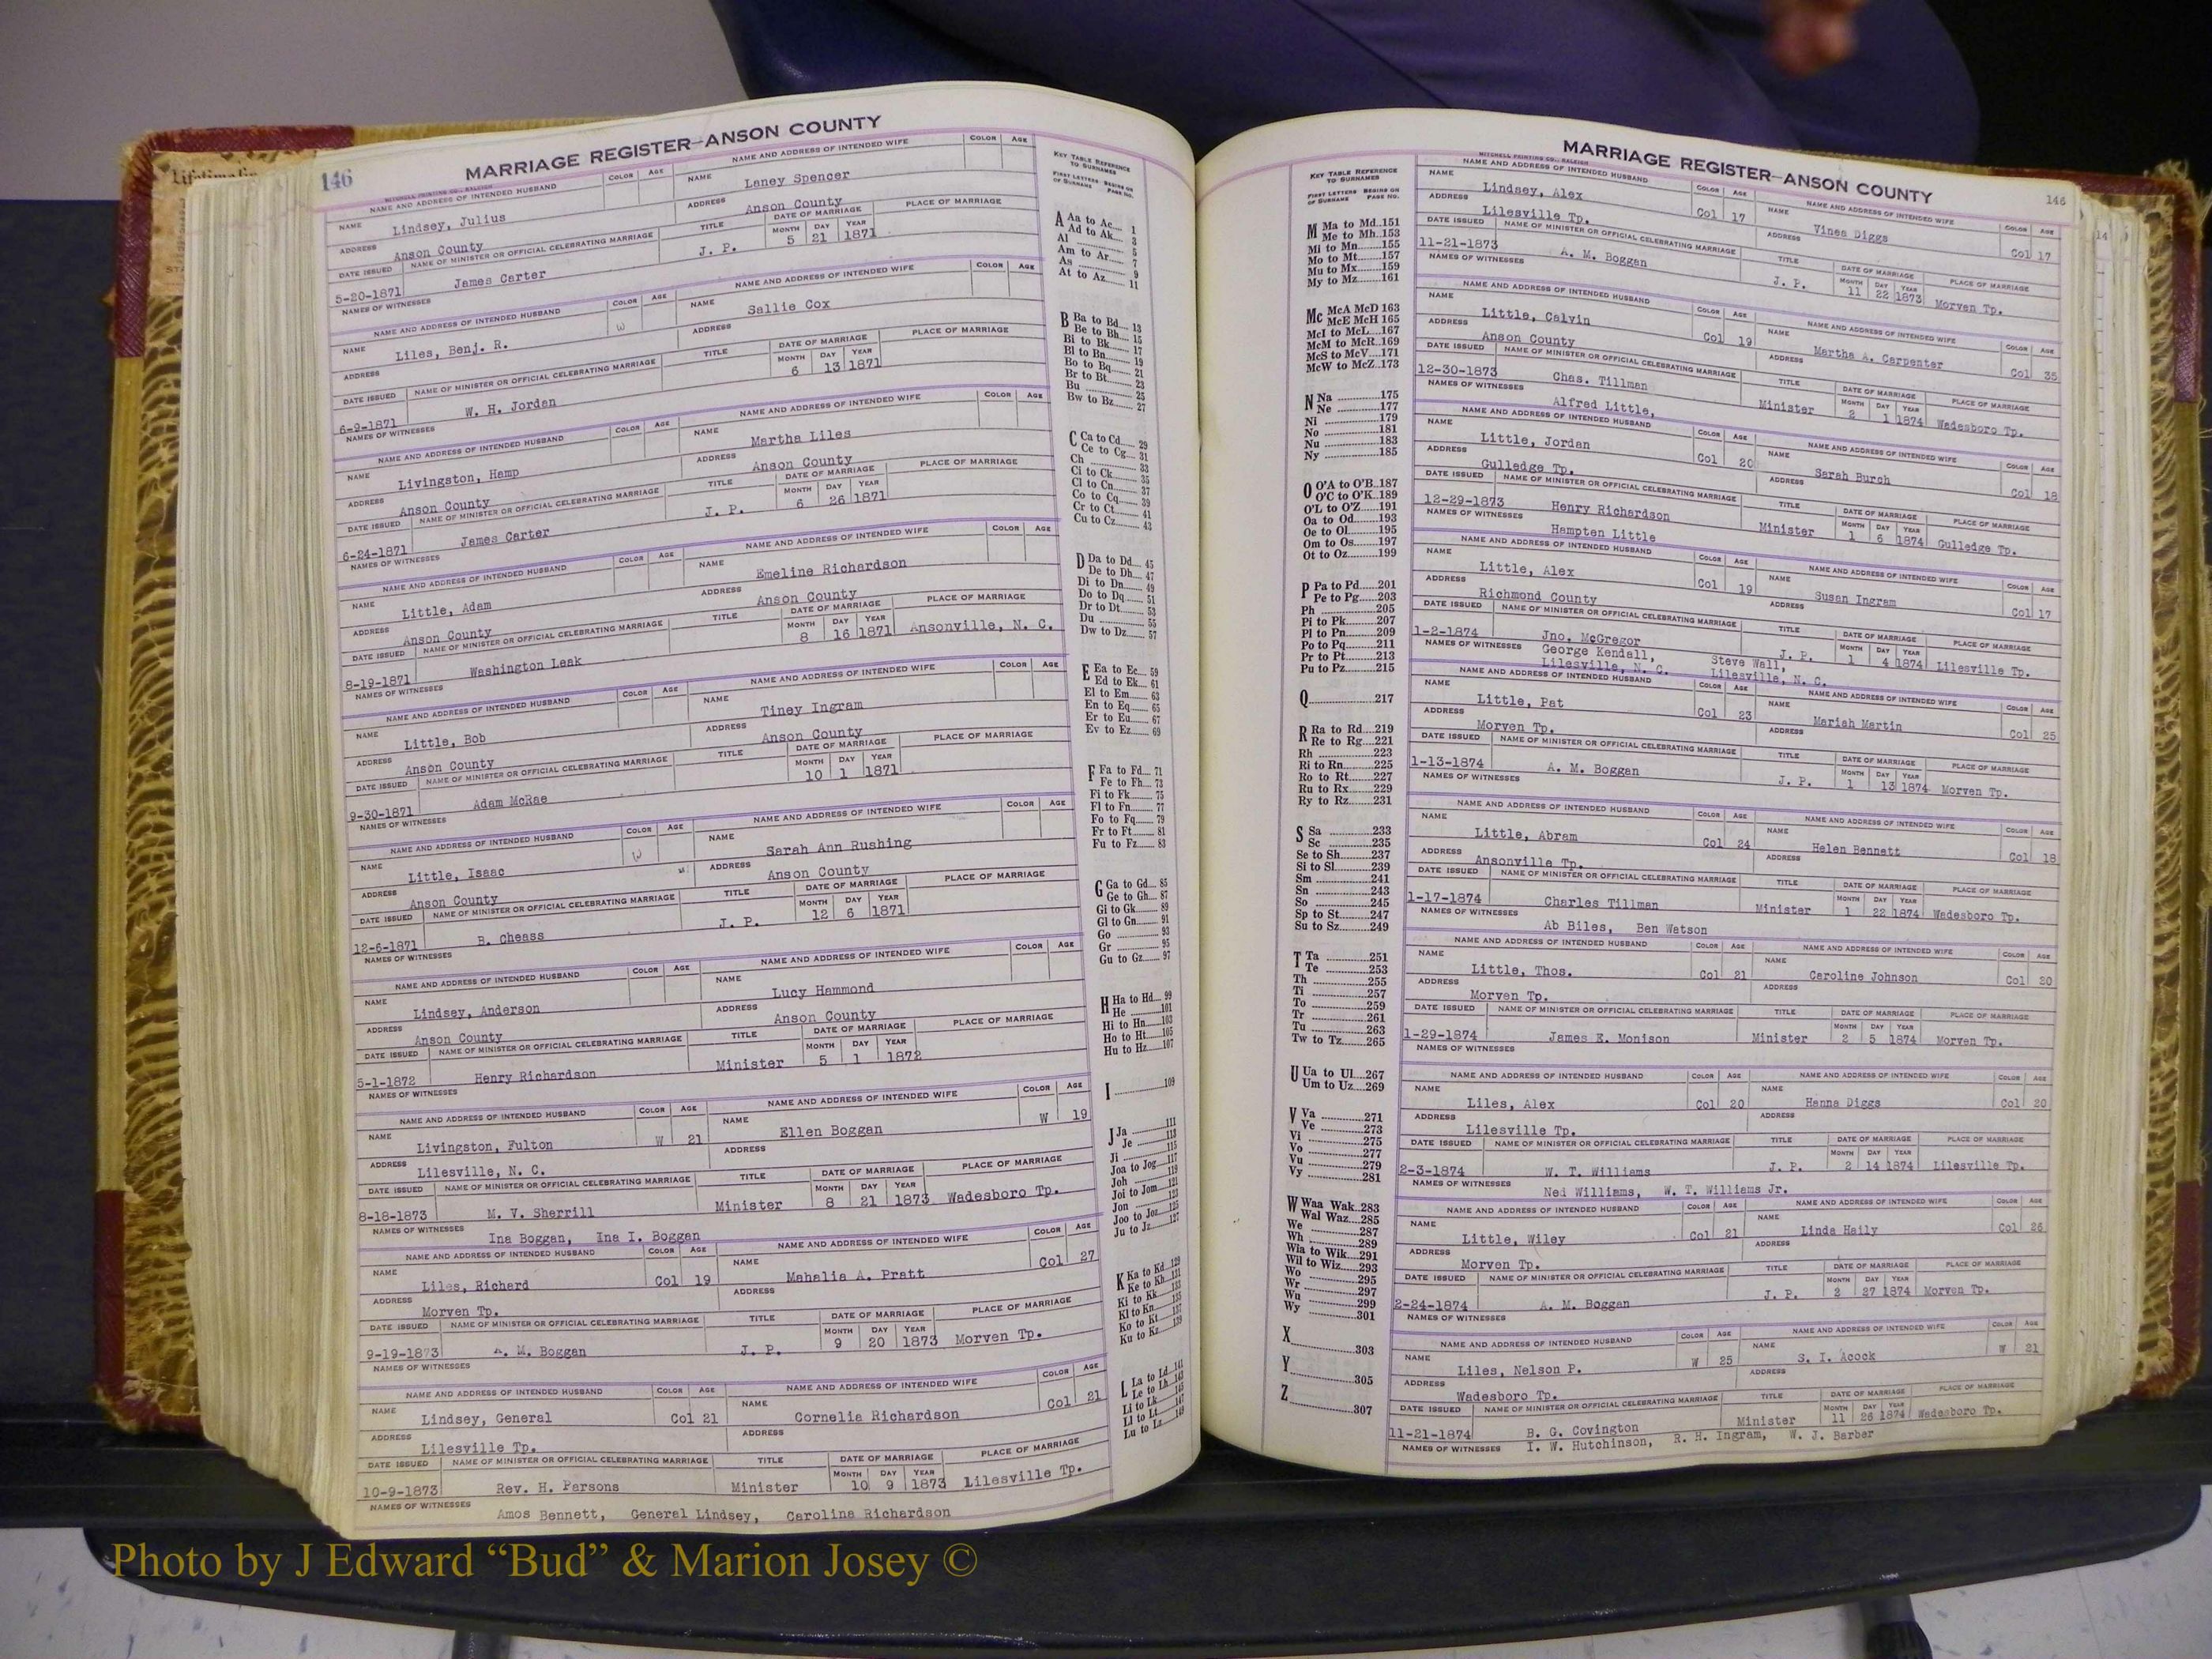 Lifetime
146
MARRIAGE REGISTER—ANSON COUNTY
MITCHELL PRINTING CO., RALEIGH
NAME AND ADDRESS OF INTENDED HUSBAND COLOR AGE NAME AND ADDRESS OF INTENDED WIFE COLOR AGE
NAME Lindsey, Julius NAME Laney Spencer
ADDRESS Anson County ADDRESS Anson County
DATE ISSUED NAME OF MINISTER OR OFFICIAL CELEBRATING MARRIAGE TITLE DATE OF MARRIAGE PLACE OF MARRIAGE
MONTH DAY YEAR
5-20-1871 James Carter J. P. 5 21 1871
NAMES OF WITNESSES
NAME AND ADDRESS OF INTENDED HUSBAND COLOR AGE NAME AND ADDRESS OF INTENDED WIFE COLOR AGE
NAME Liles, Benj. R. W NAME Sallie Cox
ADDRESS ADDRESS
DATE ISSUED NAME OF MINISTER OR OFFICIAL CELEBRATING MARRIAGE TITLE DATE OF MARRIAGE PLACE OF MARRIAGE
MONTH DAY YEAR
6-9-1871 W. H. Jordan 6 13 1871
NAMES OF WITNESSES
NAME AND ADDRESS OF INTENDED HUSBAND COLOR AGE NAME AND ADDRESS OF INTENDED WIFE COLOR AGE
NAME Livingston, Hamp NAME Martha Liles
ADDRESS Anson County ADDRESS Anson County
DATE ISSUED NAME OF MINISTER OR OFFICIAL CELEBRATING MARRIAGE TITLE DATE OF MARRIAGE PLACE OF MARRIAGE
MONTH DAY YEAR
6-24-1871 James Carter J. P. 6 26 1871
NAMES OF WITNESSES
NAME AND ADDRESS OF INTENDED HUSBAND COLOR AGE NAME AND ADDRESS OF INTENDED WIFE COLOR AGE
NAME Little, Adam NAME Emeline Richardson
ADDRESS Anson County ADDRESS Anson County
DATE ISSUED NAME OF MINISTER OR OFFICIAL CELEBRATING MARRIAGE TITLE DATE OF MARRIAGE PLACE OF MARRIAGE
MONTH DAY YEAR
8-19-1871 Washington Leak 8 16 1871 Ansonville, N. C.
NAMES OF WITNESSES
NAME AND ADDRESS OF INTENDED HUSBAND COLOR AGE NAME AND ADDRESS OF INTENDED WIFE COLOR AGE
NAME Little, Bob NAME Tiney Ingram
ADDRESS Anson County ADDRESS Anson County
DATE ISSUED NAME OF MINISTER OR OFFICIAL CELEBRATING MARRIAGE TITLE DATE OF MARRIAGE PLACE OF MARRIAGE
MONTH DAY YEAR
9-30-1871 Adam McRae 10 1 1871
NAMES OF WITNESSES
NAME AND ADDRESS OF INTENDED HUSBAND COLOR AGE NAME AND ADDRESS OF INTENDED WIFE COLOR AGE
NAME Little, Isaac W NAME Sarah Ann Rushing
ADDRESS Anson County ADDRESS Anson County
DATE ISSUED NAME OF MINISTER OR OFFICIAL CELEBRATING MARRIAGE TITLE DATE OF MARRIAGE PLACE OF MARRIAGE
MONTH DAY YEAR
12-6-1871 B. Cheass J. P. 12 6 1871
NAMES OF WITNESSES
NAME AND ADDRESS OF INTENDED HUSBAND COLOR AGE NAME AND ADDRESS OF INTENDED WIFE COLOR AGE
NAME Lindsey, Anderson NAME Lucy Hammond
ADDRESS Anson County ADDRESS Anson County
DATE ISSUED NAME OF MINISTER OR OFFICIAL CELEBRATING MARRIAGE TITLE DATE OF MARRIAGE PLACE OF MARRIAGE
MONTH DAY YEAR
5-1-1872 Henry Richardson Minister 5 1 1872
NAMES OF WITNESSES
NAME AND ADDRESS OF INTENDED HUSBAND COLOR AGE NAME AND ADDRESS OF INTENDED WIFE COLOR AGE
NAME Livingston, Fulton W 21 NAME Ellen Boggan W 19
ADDRESS Lilesville, N. C. ADDRESS
DATE ISSUED NAME OF MINISTER OR OFFICIAL CELEBRATING MARRIAGE TITLE DATE OF MARRIAGE PLACE OF MARRIAGE
MONTH DAY YEAR
8-18-1873 M. V. Sherrill Minister 8 21 1873 Wadesboro Tp.
NAMES OF WITNESSES Ina Boggan, Ina I. Boggan
NAME AND ADDRESS OF INTENDED HUSBAND COLOR AGE NAME AND ADDRESS OF INTENDED WIFE COLOR AGE
NAME Liles, Richard Col 19 NAME Mahalia A. Pratt Col 27
ADDRESS Morven Tp. ADDRESS
DATE ISSUED NAME OF MINISTER OR OFFICIAL CELEBRATING MARRIAGE TITLE DATE OF MARRIAGE PLACE OF MARRIAGE
MONTH DAY YEAR
9-19-1873 A. M. Boggan J. P. 9 20 1873 Morven Tp.
NAMES OF WITNESSES
NAME AND ADDRESS OF INTENDED HUSBAND COLOR AGE NAME AND ADDRESS OF INTENDED WIFE COLOR AGE
NAME Lindsey, General Col 21 NAME Cornelia Richardson Col 21
ADDRESS Lilesville Tp. ADDRESS
DATE ISSUED NAME OF MINISTER OR OFFICIAL CELEBRATING MARRIAGE TITLE DATE OF MARRIAGE PLACE OF MARRIAGE
MONTH DAY YEAR
10-9-1873 Rev. H. Parsons Minister 10 9 1873 Lilesville Tp.
NAMES OF WITNESSES Amos Bennett, General Lindsey, Carolina Richardson
KEY TABLE REFERENCE
TO SURNAMES
FIRST LETTERS BEGINS ON
OF SURNAME PAGE NO.
A Aa to Ac 1
Ad to Ak 3
Al 5
Am to Ar 7
As 9
At to Az 11
B Ba to Bd 13
Be to Bh 15
Bi to Bk 17
Bl to Bn 19
Bo to Bq 21
Br to Bt 23
Bu 25
Bw to Bz 27
C Ca to Cd 29
Ce to Cg 31
Ch 33
Ci to Ck 35
Cl to Cn 37
Co to Cq 39
Cr to Ct 41
Cu to Cz 43
D Da to Dd 45
De to Dh 47
Di to Dn 49
Do to Dq 51
Dr to Dt 53
Du 55
Dw to Dz 57
E Ea to Ec 59
Ed to Ek 61
El to Em 63
En to Eq 65
Er to Eu 67
Ev to Ez 69
F Fa to Fd 71
Fe to Fh 73
Fi to Fk 75
Fl to Fn 77
Fo to Fq 79
Fr to Ft 81
Fu to Fz 83
G Ga to Gd 85
Ge to Gh 87
Gi to Gk 89
Gl to Gn 91
Go 93
Gr 95
Gu to Gz 97
H Ha to Hd 99
He 101
Hi to Hn 103
Ho to Ht 105
Hu to Hz 107
I 109
J Ja 111
Je 113
Ji 115
Joa to Jog 117
Joh 119
Joi to Jom 121
Jon 123
Joo to Joz 125
Ju to Jz 127
K Ka to Kd 129
Ke to Kh 131
Ki to Kk 133
Kl to Kn 135
Ko to Kt 137
Ku to Kz 139
L La to Ld 141
Le to Lh 143
Li to Lk 145
Ll to Lt 147
Lu to Lz 149
KEY TABLE REFERENCE
TO SURNAMES
FIRST LETTERS BEGINS ON
OF SURNAME PAGE NO.
M Ma to Md 151
Me to Mh 153
Mi to Mn 155
Mo to Mt 157
Mu to Mx 159
My to Mz 161
Mc McA McD 163
McE McH 165
McI to McL 167
McM to McR 169
McS to McV 171
McW to McZ 173
N Na 175
Ne 177
Ni 179
No 181
Nu 183
Ny 185
O O'A to O'B 187
O'C to O'K 189
O'L to O'Z 191
Oa to Od 193
Oe to Ol 195
Om to Os 197
Ot to Oz 199
P Pa to Pd 201
Pe to Pg 203
Ph 205
Pi to Pk 207
Pl to Pn 209
Po to Pq 211
Pr to Pt 213
Pu to Pz 215
Q 217
R Ra to Rd 219
Re to Rg 221
Rh 223
Ri to Rn 225
Ro to Rt 227
Ru to Rx 229
Ry to Rz 231
S Sa 233
Sc 235
Se to Sh 237
Si to Sl 239
Sm 241
Sn 243
So 245
Sp to St 247
Su to Sz 249
T Ta 251
Te 253
Th 255
Ti 257
To 259
Tr 261
Tu 263
Tw to Tz 265
U Ua to Ul 267
Um to Uz 269
V Va 271
Ve 273
Vi 275
Vo 277
Vu 279
Vy 281
W Waa Wak 283
Wal Waz 285
We 287
Wh 289
Wia to Wik 291
Wil to Wiz 293
Wo 295
Wr 297
Wu 299
Wy 301
X 303
Y 305
Z 307
MARRIAGE REGISTER—ANSON COUNTY 146
MITCHELL PRINTING CO., RALEIGH
NAME AND ADDRESS OF INTENDED HUSBAND COLOR AGE NAME AND ADDRESS OF INTENDED WIFE COLOR AGE
NAME Lindsey, Alex Col 17 NAME Vines Diggs Col 17
ADDRESS Lilesville Tp. ADDRESS
DATE ISSUED NAME OF MINISTER OR OFFICIAL CELEBRATING MARRIAGE TITLE DATE OF MARRIAGE PLACE OF MARRIAGE
MONTH DAY YEAR
11-21-1873 A. M. Boggan J. P. 11 22 1873 Morven Tp.
NAMES OF WITNESSES
NAME AND ADDRESS OF INTENDED HUSBAND COLOR AGE NAME AND ADDRESS OF INTENDED WIFE COLOR AGE
NAME Little, Calvin Col 19 NAME Martha A. Carpenter Col 35
ADDRESS Anson County ADDRESS
DATE ISSUED NAME OF MINISTER OR OFFICIAL CELEBRATING MARRIAGE TITLE DATE OF MARRIAGE PLACE OF MARRIAGE
MONTH DAY YEAR
12-30-1873 Chas. Tillman Minister 2 1 1874 Wadesboro Tp.
NAMES OF WITNESSES Alfred Little,
NAME AND ADDRESS OF INTENDED HUSBAND COLOR AGE NAME AND ADDRESS OF INTENDED WIFE COLOR AGE
NAME Little, Jordan Col 20 NAME Sarah Burch Col 18
ADDRESS Gulledge Tp. ADDRESS
DATE ISSUED NAME OF MINISTER OR OFFICIAL CELEBRATING MARRIAGE TITLE DATE OF MARRIAGE PLACE OF MARRIAGE
MONTH DAY YEAR
12-29-1873 Henry Richardson Minister 1 6 1874 Gulledge Tp.
NAMES OF WITNESSES Hampten Little
NAME AND ADDRESS OF INTENDED HUSBAND COLOR AGE NAME AND ADDRESS OF INTENDED WIFE COLOR AGE
NAME Little, Alex Col 19 NAME Susan Ingram Col 17
ADDRESS Richmond County ADDRESS
DATE ISSUED NAME OF MINISTER OR OFFICIAL CELEBRATING MARRIAGE TITLE DATE OF MARRIAGE PLACE OF MARRIAGE
MONTH DAY YEAR
1-2-1874 Jno. McGregor J. P. 1 4 1874 Lilesville Tp.
NAMES OF WITNESSES George Kendall, Steve Wall,
Lilesville, N. C. Lilesville, N. C.
NAME AND ADDRESS OF INTENDED HUSBAND COLOR AGE NAME AND ADDRESS OF INTENDED WIFE COLOR AGE
NAME Little, Pat Col 23 NAME Mariah Martin Col 25
ADDRESS Morven Tp. ADDRESS
DATE ISSUED NAME OF MINISTER OR OFFICIAL CELEBRATING MARRIAGE TITLE DATE OF MARRIAGE PLACE OF MARRIAGE
MONTH DAY YEAR
1-13-1874 A. M. Boggan J. P. 1 13 1874 Morven Tp.
NAMES OF WITNESSES
NAME AND ADDRESS OF INTENDED HUSBAND COLOR AGE NAME AND ADDRESS OF INTENDED WIFE COLOR AGE
NAME Little, Abram Col 24 NAME Helen Bennett Col 18
ADDRESS Ansonville Tp. ADDRESS
DATE ISSUED NAME OF MINISTER OR OFFICIAL CELEBRATING MARRIAGE TITLE DATE OF MARRIAGE PLACE OF MARRIAGE
MONTH DAY YEAR
1-17-1874 Charles Tillman Minister 1 22 1874 Wadesboro Tp.
NAMES OF WITNESSES Ab Biles, Ben Watson
NAME AND ADDRESS OF INTENDED HUSBAND COLOR AGE NAME AND ADDRESS OF INTENDED WIFE COLOR AGE
NAME Little, Thos. Col 21 NAME Caroline Johnson Col 20
ADDRESS Morven Tp. ADDRESS
DATE ISSUED NAME OF MINISTER OR OFFICIAL CELEBRATING MARRIAGE TITLE DATE OF MARRIAGE PLACE OF MARRIAGE
MONTH DAY YEAR
1-29-1874 James E. Monison Minister 2 5 1874 Morven Tp.
NAMES OF WITNESSES
NAME AND ADDRESS OF INTENDED HUSBAND COLOR AGE NAME AND ADDRESS OF INTENDED WIFE COLOR AGE
NAME Liles, Alex Col 20 NAME Hanna Diggs Col 20
ADDRESS Lilesville Tp. ADDRESS
DATE ISSUED NAME OF MINISTER OR OFFICIAL CELEBRATING MARRIAGE TITLE DATE OF MARRIAGE PLACE OF MARRIAGE
MONTH DAY YEAR
2-3-1874 W. T. Williams J. P. 2 14 1874 Lilesville Tp.
NAMES OF WITNESSES Ned Williams, W. T. Williams Jr.
NAME AND ADDRESS OF INTENDED HUSBAND COLOR AGE NAME AND ADDRESS OF INTENDED WIFE COLOR AGE
NAME Little, Wiley Col 21 NAME Linda Haily Col 26
ADDRESS Morven Tp. ADDRESS
DATE ISSUED NAME OF MINISTER OR OFFICIAL CELEBRATING MARRIAGE TITLE DATE OF MARRIAGE PLACE OF MARRIAGE
MONTH DAY YEAR
2-24-1874 A. M. Boggan J. P. 2 27 1874 Morven Tp.
NAMES OF WITNESSES
NAME AND ADDRESS OF INTENDED HUSBAND COLOR AGE NAME AND ADDRESS OF INTENDED WIFE COLOR AGE
NAME Liles, Nelson P. W 25 NAME S. I. Acock W 21
ADDRESS Wadesboro Tp. ADDRESS
DATE ISSUED NAME OF MINISTER OR OFFICIAL CELEBRATING MARRIAGE TITLE DATE OF MARRIAGE PLACE OF MARRIAGE
MONTH DAY YEAR
11-21-1874 B. G. Covington Minister 11 26 1874 Wadesboro Tp.
NAMES OF WITNESSES I. W. Hutchinson, R. H. Ingram, W. J. Barber
14
Photo by J Edward “Bud” & Marion Josey ©